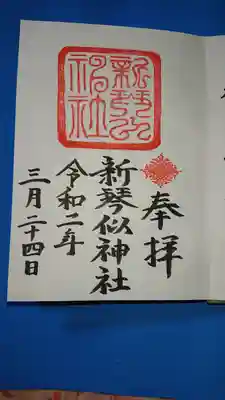 奉拝
新琴似神社
令和二年
三月二十四日
新琴似神社